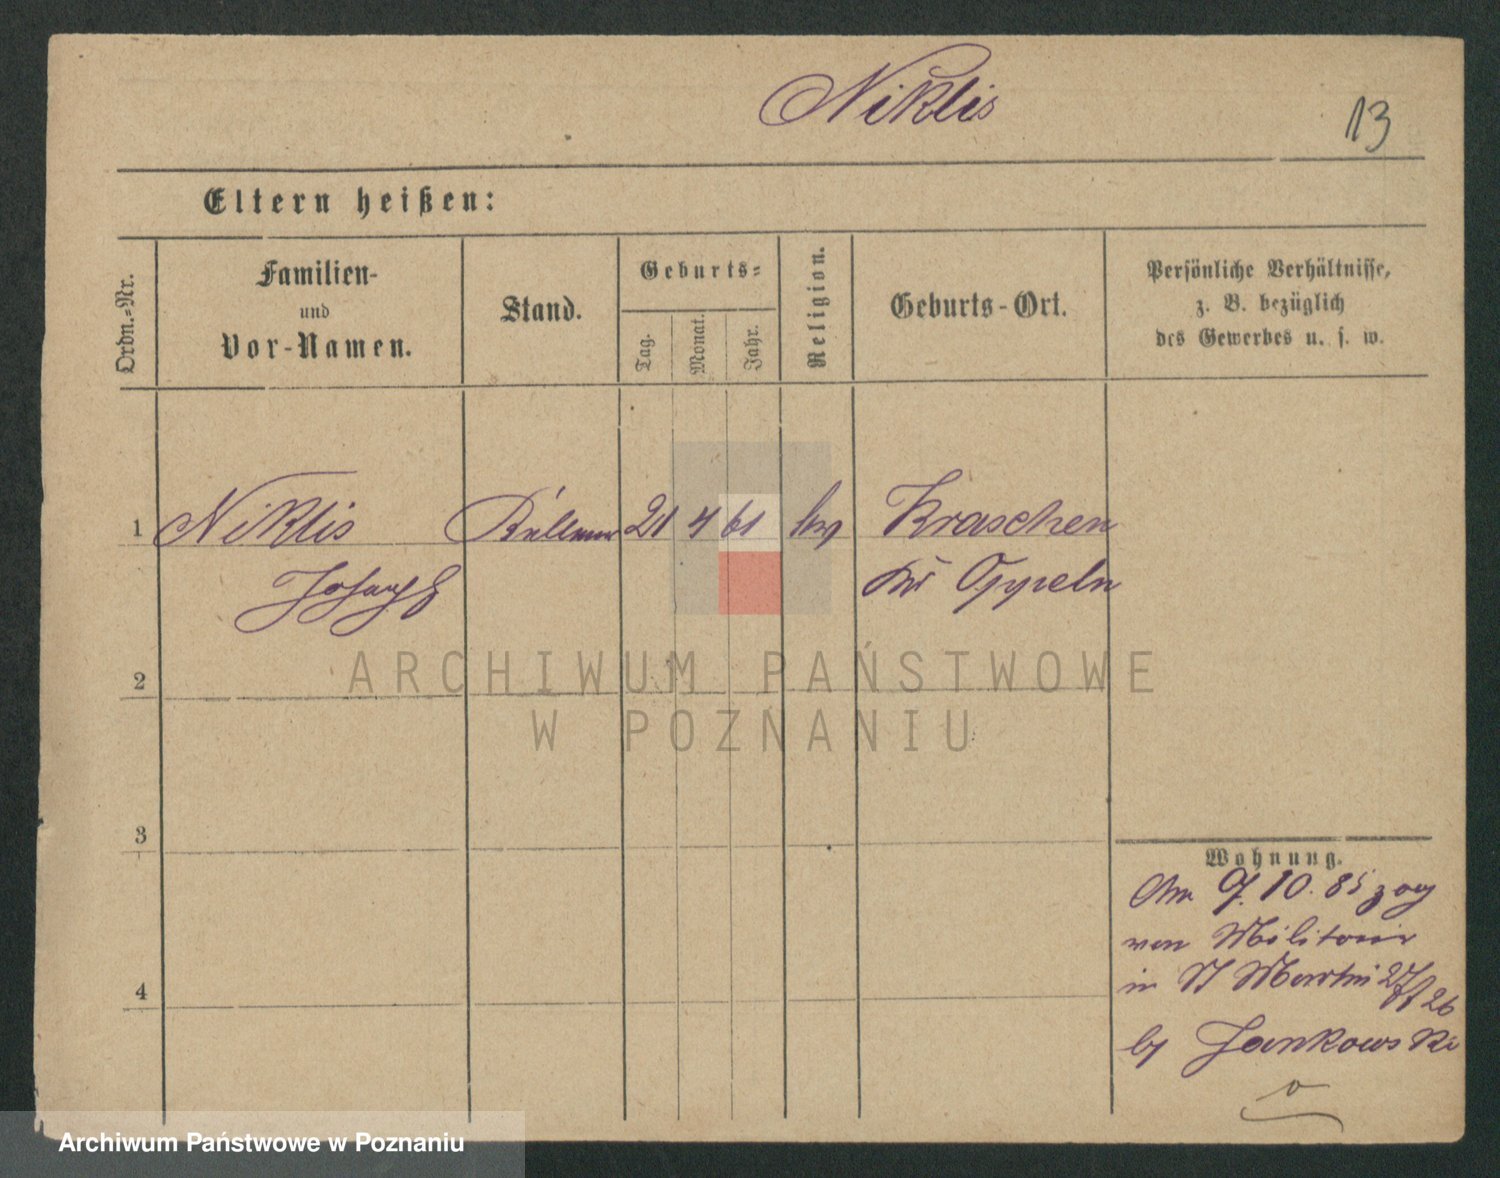 Niklis
13
Eltern heißen:
Ordn.-Nr.
Familien-
und
Vor-Namen.
Stand.
Geburts-
Tag.
Monat.
Jahr.
Religion.
Geburts-Ort.
Persönliche Verhältnisse,
z. B. bezüglich
des Gewerbes u. s. w.
1 Niklis Kellner 21 4 61 Kraschen
Joseph Kr Oppeln
ARCHIWUM PAŃSTWOWE
W POZNANIU
2
3
4
Wohnung.
Am 7. 10. 85 zog
von Militair
in St Martin 27
by Jankowski
Archiwum Państwowe w Poznaniu